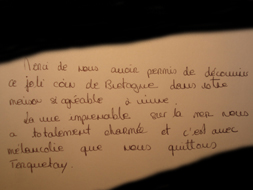 Merci de nous avoir permis de découvrir
ce joli coin de Bretagne dans votre
maison si agréable à vivre.
La vue imprenable sur la mer nous
a totalement charmée et c'est avec
mélancolie que nous quittons